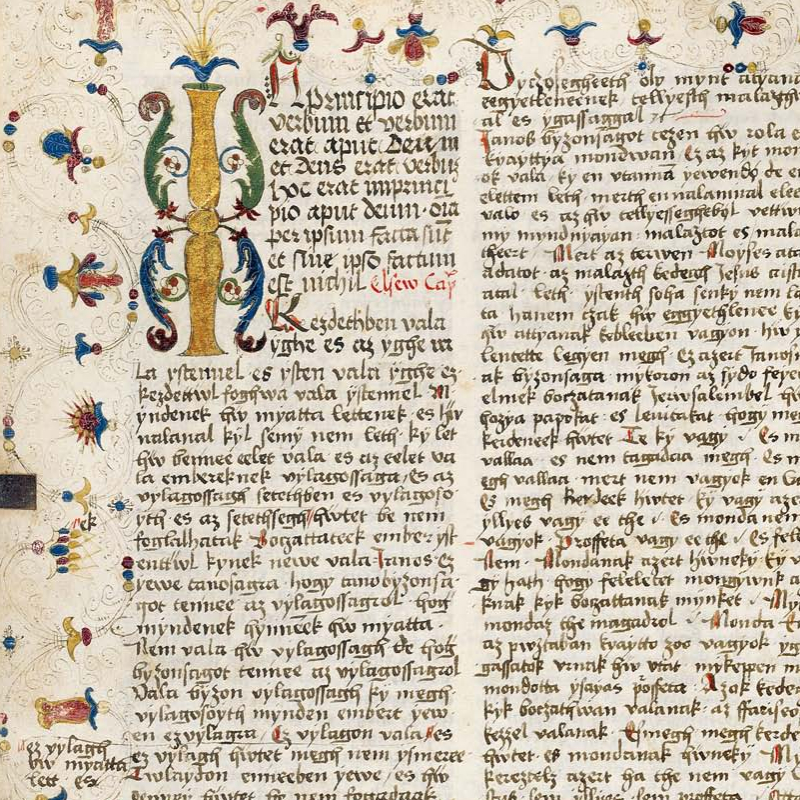 A principio erat
verbum et verbum
erat aput Deum
et Deus erat verbum
hoc erat in princi
pio aput deum · oia
per ipsum facta sūt
et sine ipso factum
est nichil Elsew Cap
Kezdethben vala
yghe es az yghe va
la ystennel es ysten vala yghe ez
kezdetwl foghwa vala ystennel M
yndenek hw myatta lettenek · es hw
nalanal kyl semy nem leth · ky let
hw bennee eelet vala es az eelet va
la embereknek vylagossaga es az
vylagossagh setethben es vylagoso
yth · es az setethsegh hwtet be nem
foglalhatik Bochattateek ember yst
entwl kynek newe vala Ianos Ez
yewe tanosagra · hogy tanobyzonsa
got tennee az vylagossagrol · hog
myndenek hynneek hw myatta ·
Nem vala hw vylagossagh de hog
byzonsagot tennee az vylagossagrol
Vala byzon vylagossagh ky megh
vylagosoyth mynden embert yew
en ez vylagra Ez vylagon vala es
ez vylagh hwtet megh nem ysmeree
Twlaydon enneeben yewe es hw
ek
ez vylagh
hw myatta
lett es
al es ygassaggal
Ianos byzonsagot tezen hw rola e
kyayttya mondwan Ez az kyt mon
ok vala ky en vtannā yewendo de e
elettem leth · merth en nalamnal elee
valo es az hw tellyessegheböl vettw
my myndnyayan · malaztot es mala
theert · Mert az terwen · Moyses ata
adatot · az malazth kedegh Jesus cristu
atal · leth · ystenth soha senky nem la
ta hanem czak hw eggyethlenee ky
hw attyanak kebleeben vagyon · hw y
lentette legyen megh · Ez azert Ianosn
ak byzonsaga mykoron az sydo feye
elmek bochatanak Jerwsalembel hw
hozya papokat · es levitakat hogy meg
kerdeneek hwtet Te ky vagy · Es m
vallaa · es nem tagadaa megh · Es m
egh vallaa · mert nem vagyok en
Es megh kerdeek hwtet ky vagy azer
yllyes vagy ee the · Es monda nem
vagyok · Proffeta vagy ee the · Es fele
Nem · Mondanak azert hwneky ky v
agy hath · hogy feleletet mongywnk a
knak kyk bochattanak mynket · My
mondaz the magadrol · Monda E
az pwztaban kyaytto zoo vagyok yg
gassatok vrnak hw vtat mykeppen m
mondotta ysayas proffeta · Azok kede
kyk bochathwan valanak · az ffariseo
kezzel valanak · Esmegh kerde
hwtet · es mondanak hwneky · My
kerezteelz azert ha the nem vagy